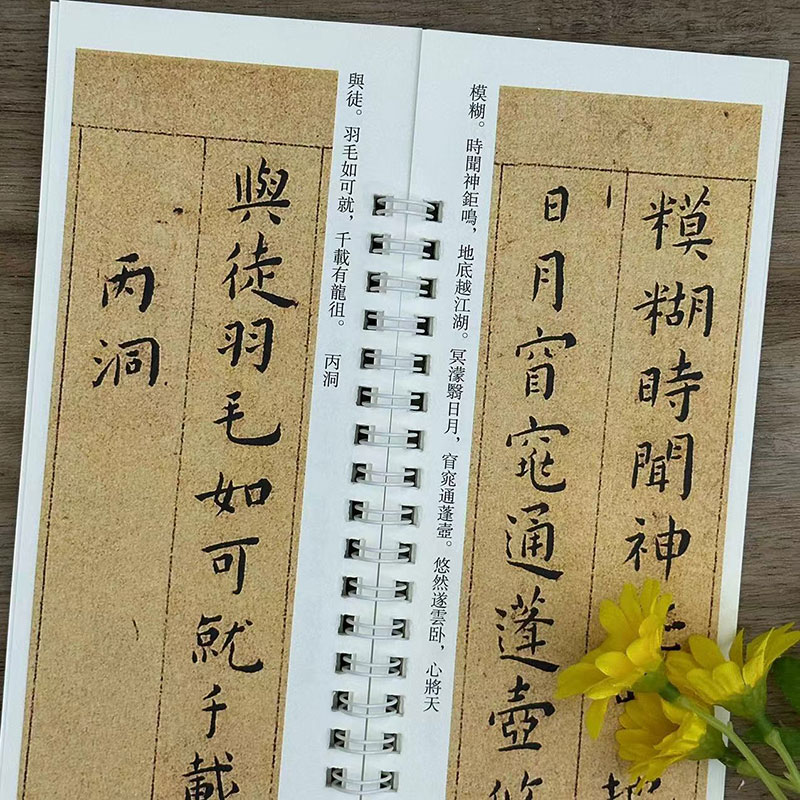 糢糊時聞神
日月窅窕通蓬壺悠
模糊。時聞神鉅鳴，地底越江湖。冥濛翳日月，窅窕通蓬壺。悠然遂雲卧，心將天
與徒。羽毛如可就，千載有龍徂。 丙洞
與徒羽毛如可就千載
丙洞